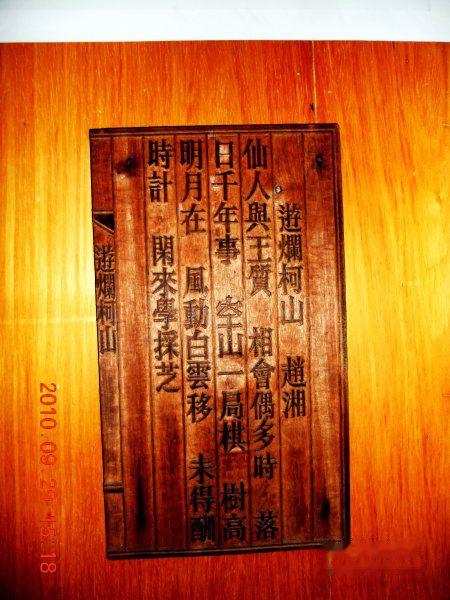 遊爛柯山 趙湘
仙人與王質 相會偶多時 落
日千年事 空山一局棋 樹高
明月在 風動白雲移 未得酬
時計 閑來學採芝
遊爛柯山